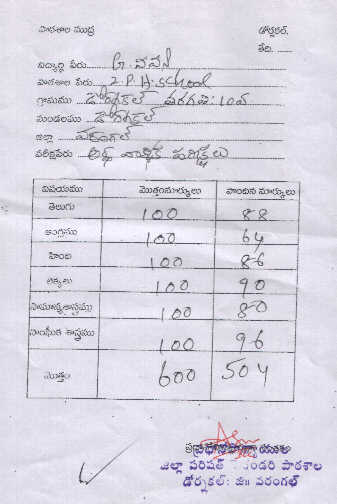 పాఠశాల ముద్ర డోర్నకల్.
తేది. ......
విద్యార్థి పేరు.... G. పవన్
పాఠశాల పేరు.... Z.P.H. School
గ్రామము.... డోర్నకల్ తరగతి: 10వ
మండలము.... డోర్నకల్
జిల్లా.... వరంగల్
పరీక్షపేరు.... అర్ధ వార్షిక పరీక్షలు
విషయము మొత్తంమార్కులు పొందిన మార్కులు
తెలుగు 100 88
ఆంగ్లము 100 64
హిందీ 100 86
లెక్కలు 100 90
సామాన్యశాస్త్రము 100 80
సాంఘీక శాస్త్రము 100 96
మొత్తం 600 504
ప్రధానోపాధ్యాయులు
జిల్లా పరిషత్ సెకండరి పాఠశాల
డోర్నకల్: జిll వరంగల్